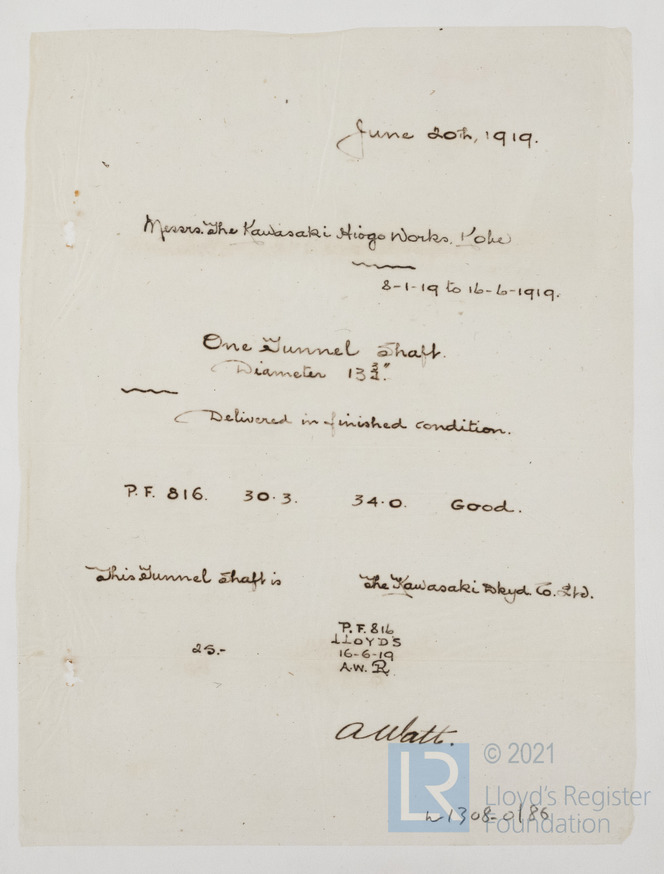 June 20th, 1919.
Messrs. The Kawasaki Hiogo Works. Kobe
8-1-19 to 16-6-1919.
One Tunnel Shaft.
Diameter 13 3/4".
Delivered in finished condition.
P.F. 816. 30.3. 34.0. Good.
This Tunnel Shaft is The Kawasaki Dkyd. Co. Ltd.
P.F. 816
LLOYD'S
25.- 16-6-19
A.W. R
A Watt.
© 2021
LR Lloyd's Register
Foundation
1308-0186